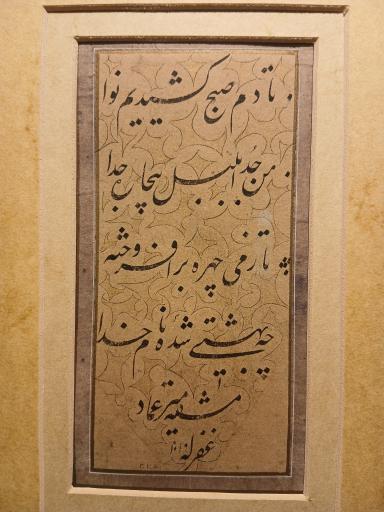 تا دم صبح کشیدیم نوا
من جدا بلبل بیچاره جدا
تا ز می چهره برافروخته
چه بهشتی شدهٔ نام خدا
مشقه میر عماد
غفر له